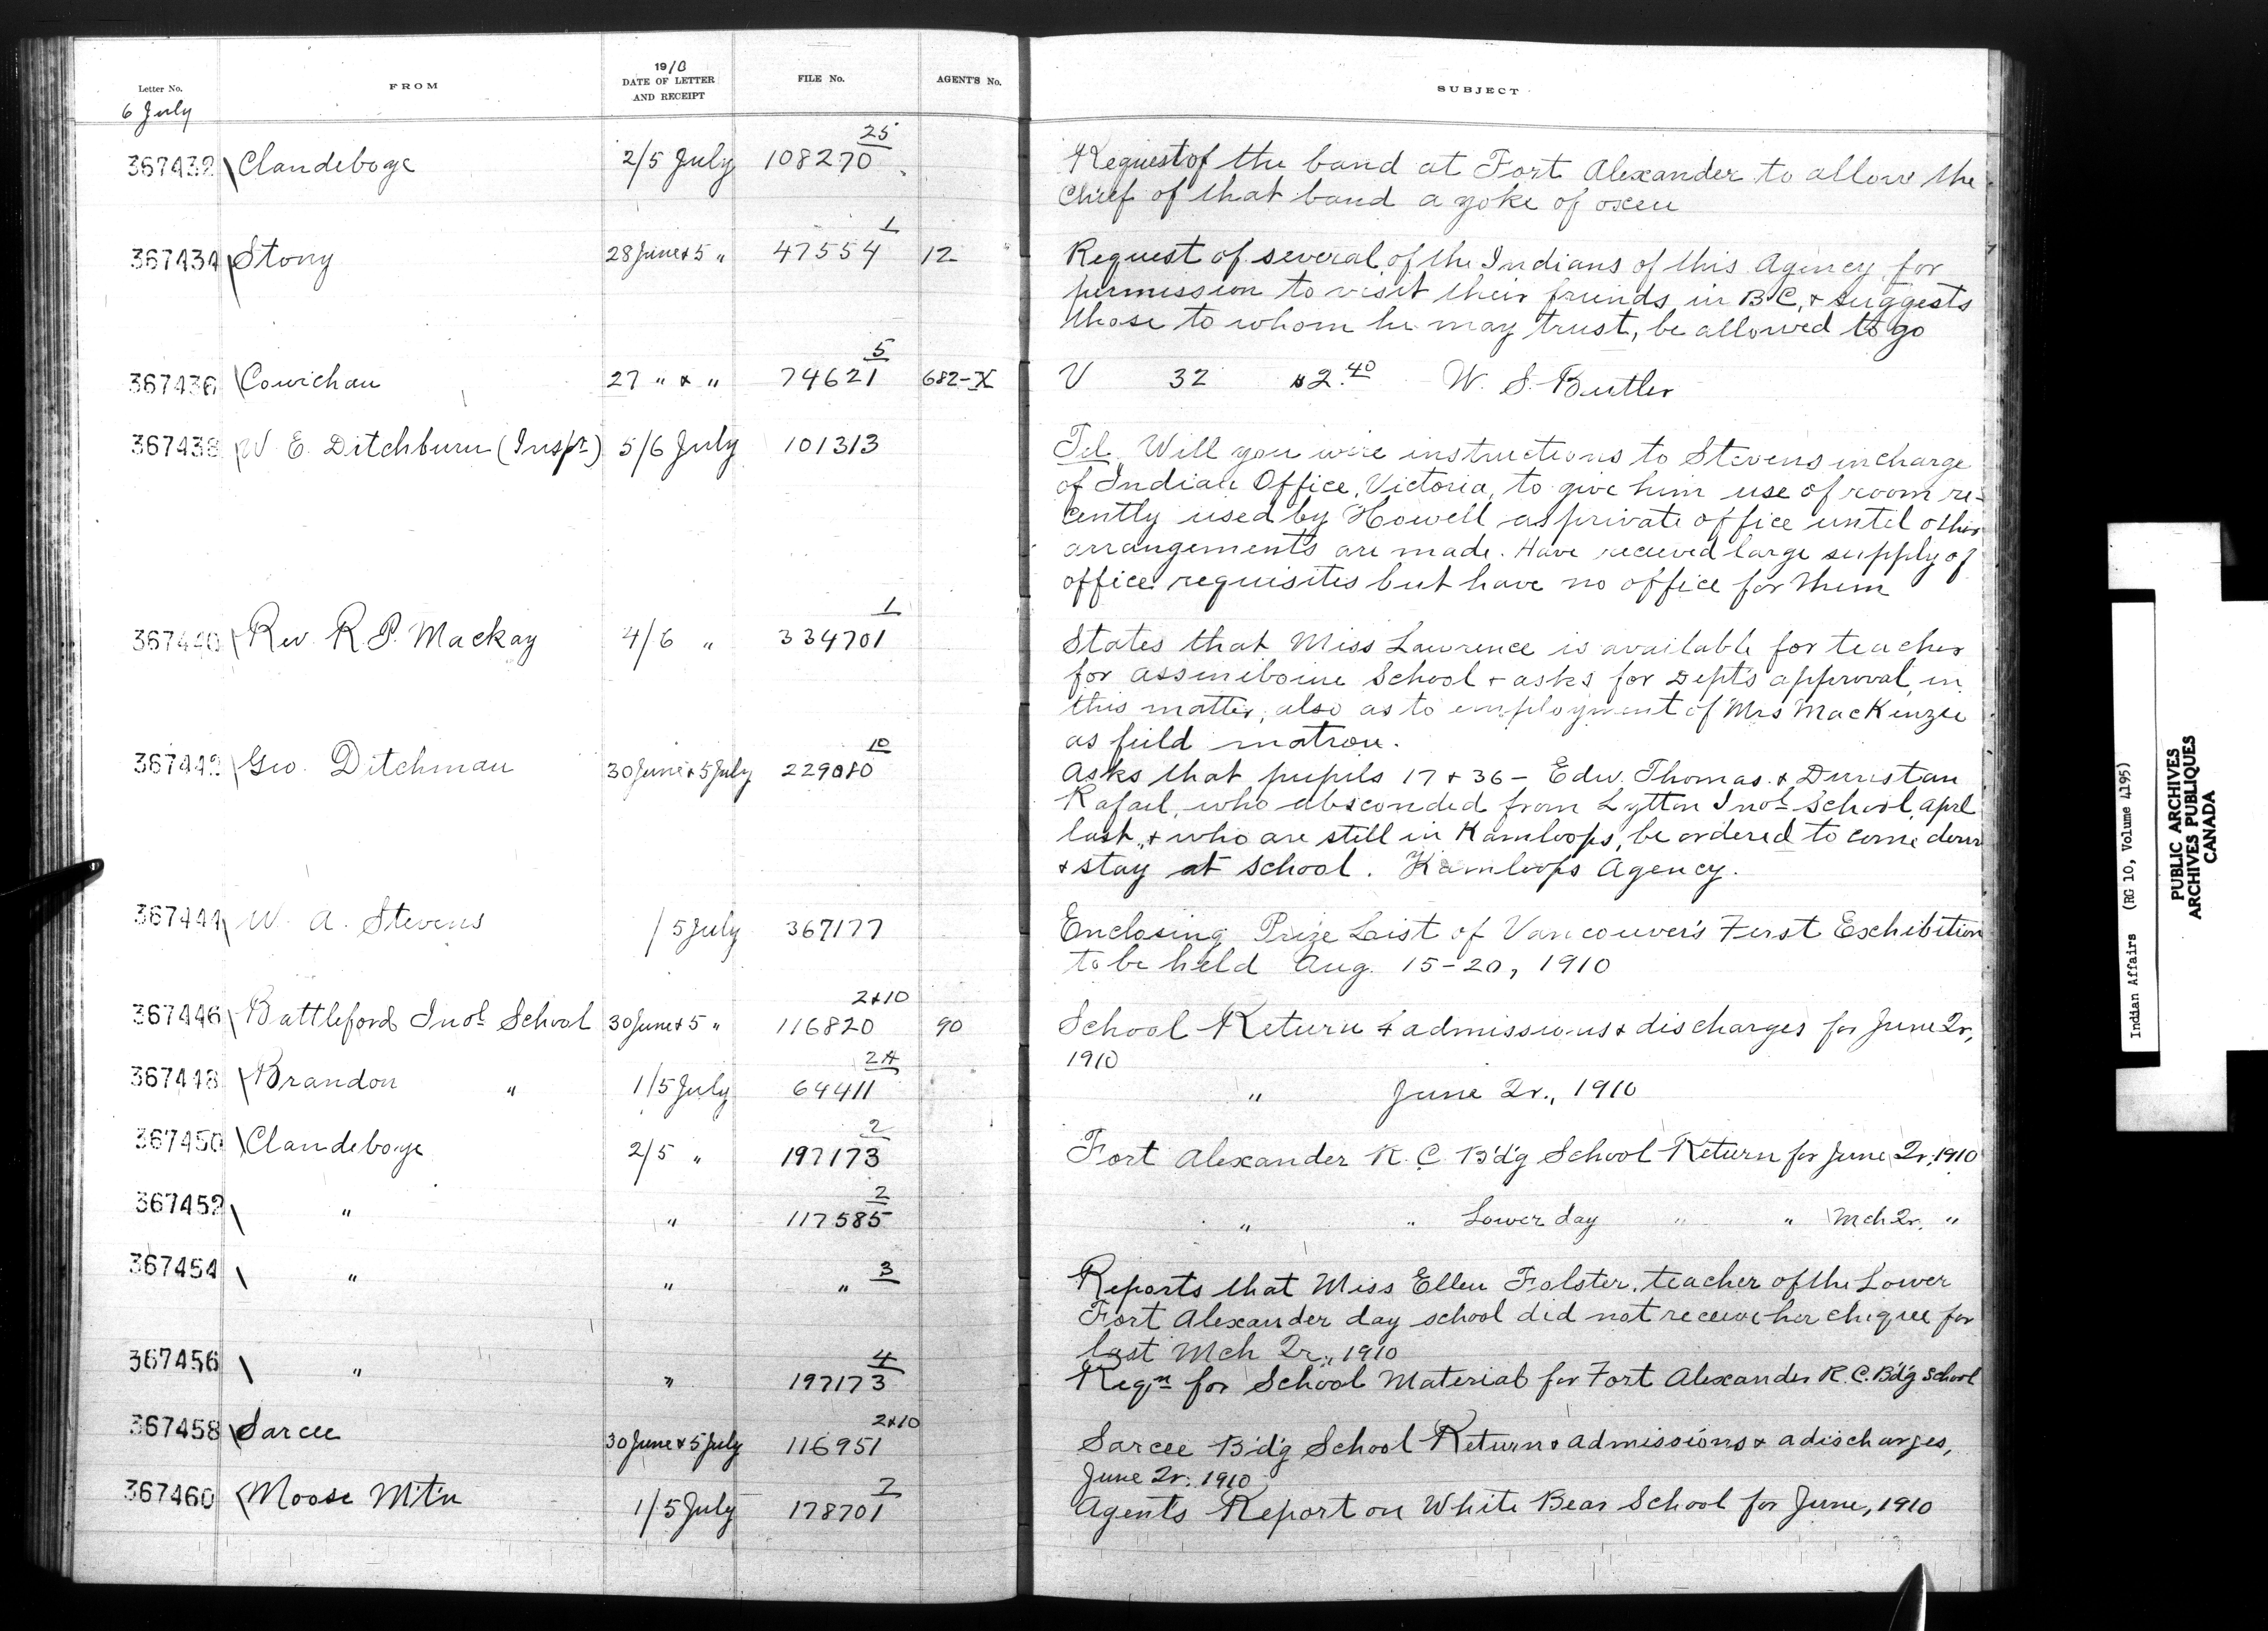 Letter No.
FROM
1910
DATE OF LETTER
AND RECEIPT
FILE No.
AGENT'S No.
SUBJECT
6 July
25
367432 Clandeboye 2/5 July 108270 Request of the band at Fort Alexander to allow the
Chief of that band a yoke of oxen
1
367434 Stony 28 June & 5 " 47554 12 Request of several of the Indians of this Agency for
permission to visit their friends in B.C. & suggests
those to whom he may trust, be allowed to go
5
367436 Cowichan 27 " & " 74621 682-X V 32 $2.40 W. S. Butler
367438 W E. Ditchburn (Inspr) 5/6 July 101313 Tel. Will you wire instructions to Stevens in charge
of Indian Office, Victoria, to give him use of room re-
cently used by Howell as private office until other
arrangements are made. Have received large supply of
office requisites but have no office for them
1
367440 Rev. R. P. Mackay 4/6 " 334701 States that Miss Lawrence is available for teacher
for Assineboine School & asks for Dept's approval in
this matter, also as to employment of Mrs MacKenzie
as field matron.
10
367442 Geo. Ditchman 30 June & 5 July 229080 Asks that pupils 17 & 36 - Edw. Thomas & Dunstan
Rafael, who absconded from Lytton Indl School, April
last, & who are still in Kamloops, be ordered to come down
& stay at school. Kamloops Agency.
367444 W. A. Stevens / 5 July 367177 Enclosing Prize List of Vancouver's First Exchibition
to be held Aug. 15-20, 1910
2&10
367446 Battleford Indl School 30 June & 5 " 116820 90 School Return & admissions & discharges for June Qr,
1910
24
367448 Brandon " 1/5 July 64411 " June Qr., 1910
2
367450 Clandeboye 2/5 " 197173 Fort Alexander R. C. B'd'g School Return for June Qr, 1910
2
367452 " " 117585 " " Lower day " " Mch Qr. "
3
367454 " " " Reports that Miss Ellen Folster, teacher of the Lower
Fort Alexander day school did not receive her cheque for
last Mch Qr., 1910
4
367456 " " 197173 Reqn for School Material for Fort Alexander R. C. B'd'g School
2&10
367458 Sarcee 30 June & 5 July 116951 Sarcee B'd'g School Return & admissions & adischarges,
June Qr. 1910
2
367460 Moose Mt'n 1/5 July 178701 Agents Report on White Bear School for June, 1910
Indian Affairs (RG 10, Volume 4195)
PUBLIC ARCHIVES
ARCHIVES PUBLIQUES
CANADA